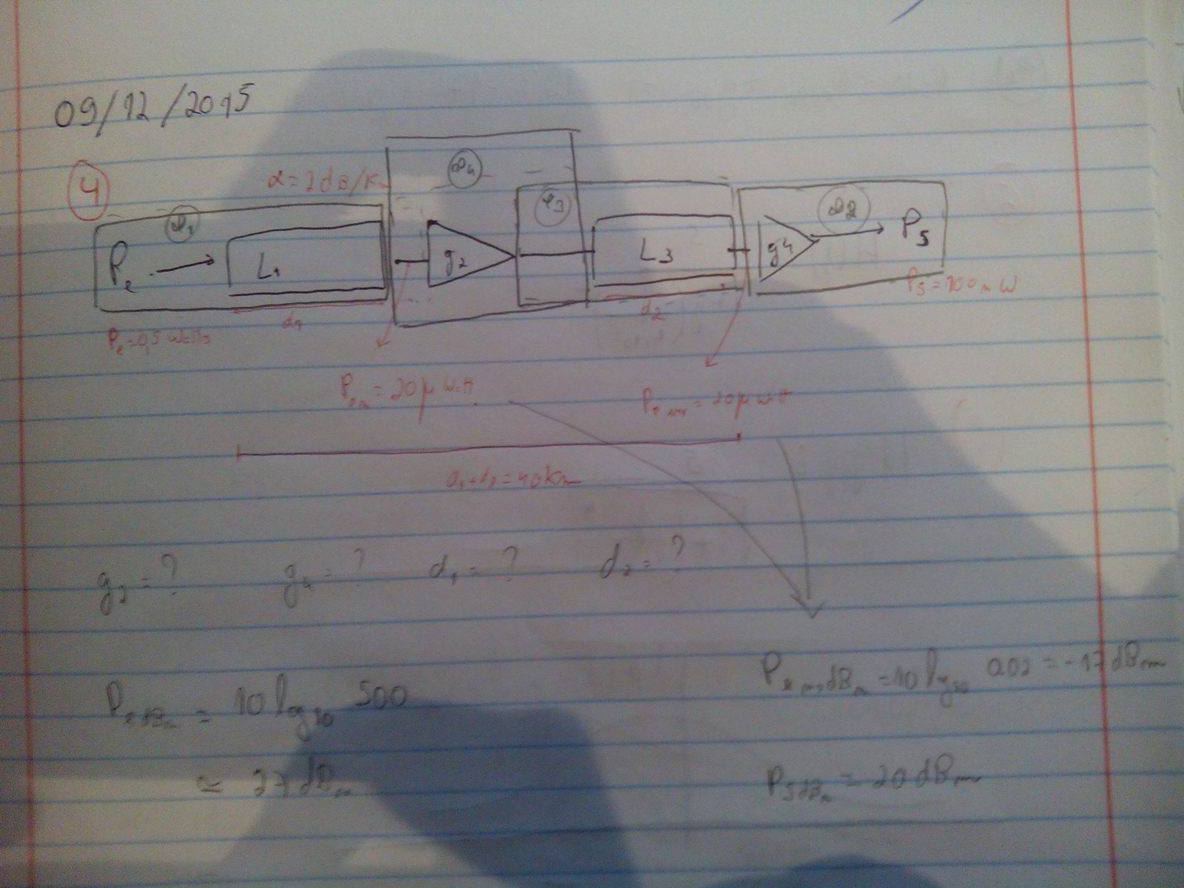 09/12/2015
4
α = 2 dB/Km
Pe → L1 g2 L3 g4 → Ps
Pe = 0,5 Watts
d1
d2
Ps = 100 m W
= 20 μ Watt
= 20 μ watt
d1 + d2 = 40 Km
g2 = ? g4 = ? d1 = ? d2 = ?
Pe dBm = 10 log10 500
≃ 27 dBm
= 10 log10 0.02 = -17 dBm
Ps dBm = 20 dBm